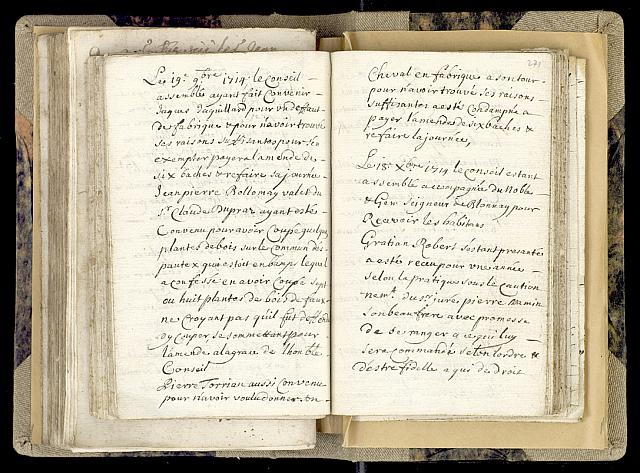 Le 19e 9bre 1714 le Conseil
assemblé ayant fait Convenir
Jaques daguillard pour un deffaut
de fabrique & pour n'avoir trouvé
ses raisons suffisantes pour s'en
exempter payera lamende de
six baches & refaire sa journée
Jean pierre Bollomay valet du
Sr Claude Dupraz ayant esté
Convenu pour avoir Coupé quelque
plantes de bois sur le Commun des
pauteux qui estoit en bamps lequel
a confessé en avoir Coupé sept
ou huit plantes de bois de faux
ne Croyant pas qu'il fut deffendu
dy Couper se sommettant pour
lamende a la grace de lhonble
Conseil
Pierre Torrian aussi Convenu
pour n'avoir voulu donner un
271
Cheval en fabrique a son tour
pour n'avoir trouvé ses raisons
suffisantes a esté Condampné a
payer lamende de six baches &
refaire la journée
Le 15e Xbre 1714 le Conseil estant
assemblé acompagné du Noble
& Gen. Seigneur de Blonnay pour
Recevoir les habitans
Gratian Robert s'estant presanté
a esté receu pour une année
selon la pratique sous le caution
nemt du Sr juré pierre
son beau frere avec promesse
de de ranger a ce qui luy
sera commandé selon lordre &
destre fidelle a qui de droit